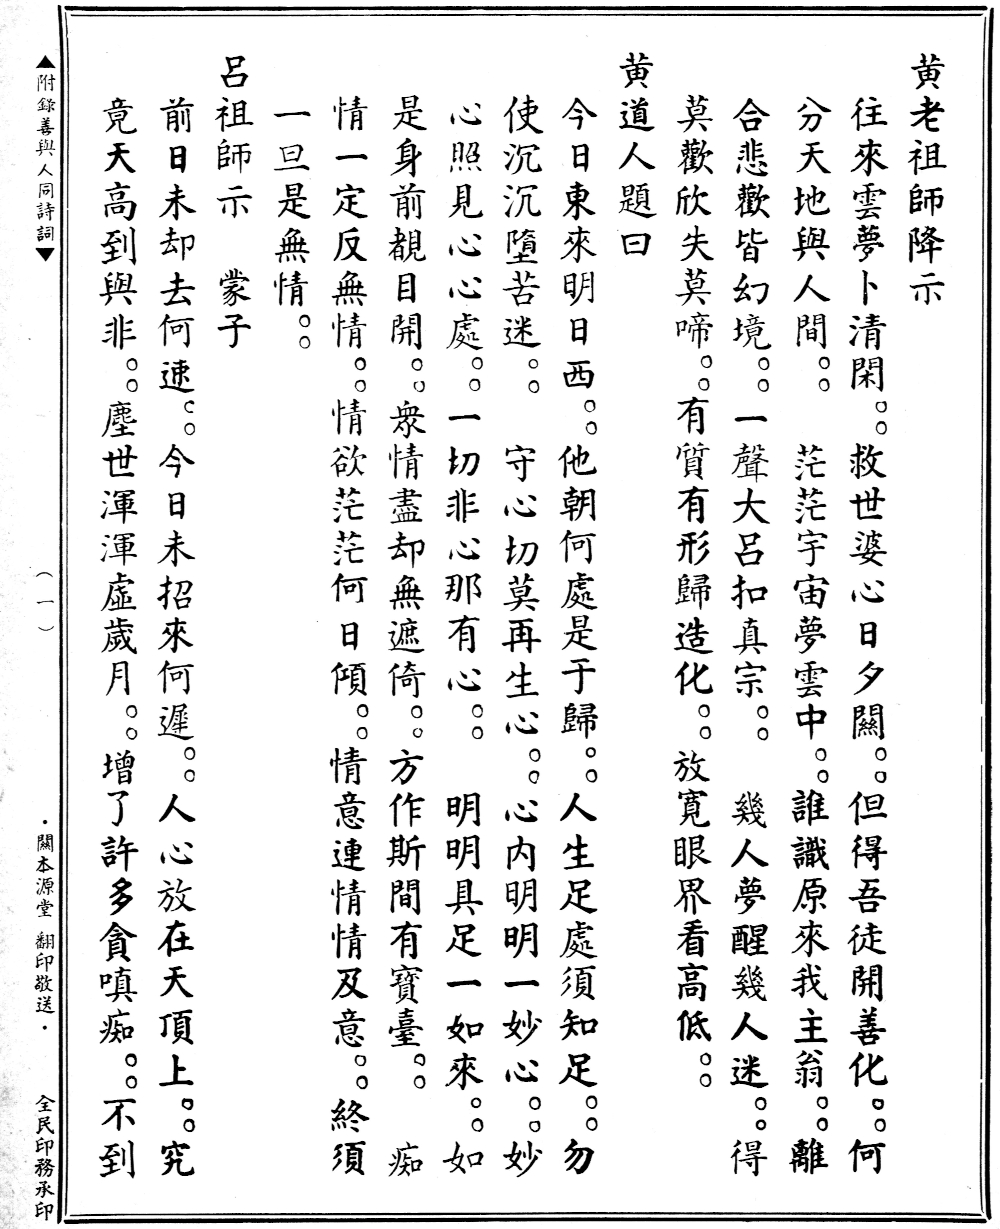 黄老祖師降示
往來雲夢卜清閑。。救世婆心日夕關。。但得吾徒開善化。。何
分天地與人間。。　茫茫宇宙夢雲中。。誰識原來我主翁。。離
合悲歡皆幻境。。一聲大呂扣真宗。。　幾人夢醒幾人迷。。得
莫歡欣失莫啼。。有質有形歸造化。。放寬眼界看高低。。
黄道人題曰
今日東來明日西。。他朝何處是于歸。。人生足處須知足。。勿
使沉沉墮苦迷。。　守心切莫再生心。。心内明明一妙心。。妙
心照見心心處。。一切非心那有心。。　明明具足一如來。。如
是身前覩目開。。衆情盡却無遮倚。。方作斯間有寶臺。。　痴
情一定反無情。。情欲茫茫何日傾。。情意連情情及意。。終須
一旦是無情。。
呂祖師示　蒙子
前日未却去何速。。今日未招來何遲。。人心放在天頂上。。究
竟天高到與非。。塵世渾渾虛歲月。。增了許多貪嗔痴。。不到
▲附錄善與人同詩詞▼
（一）
·關本源堂　翻印敬送·
全民印務承印